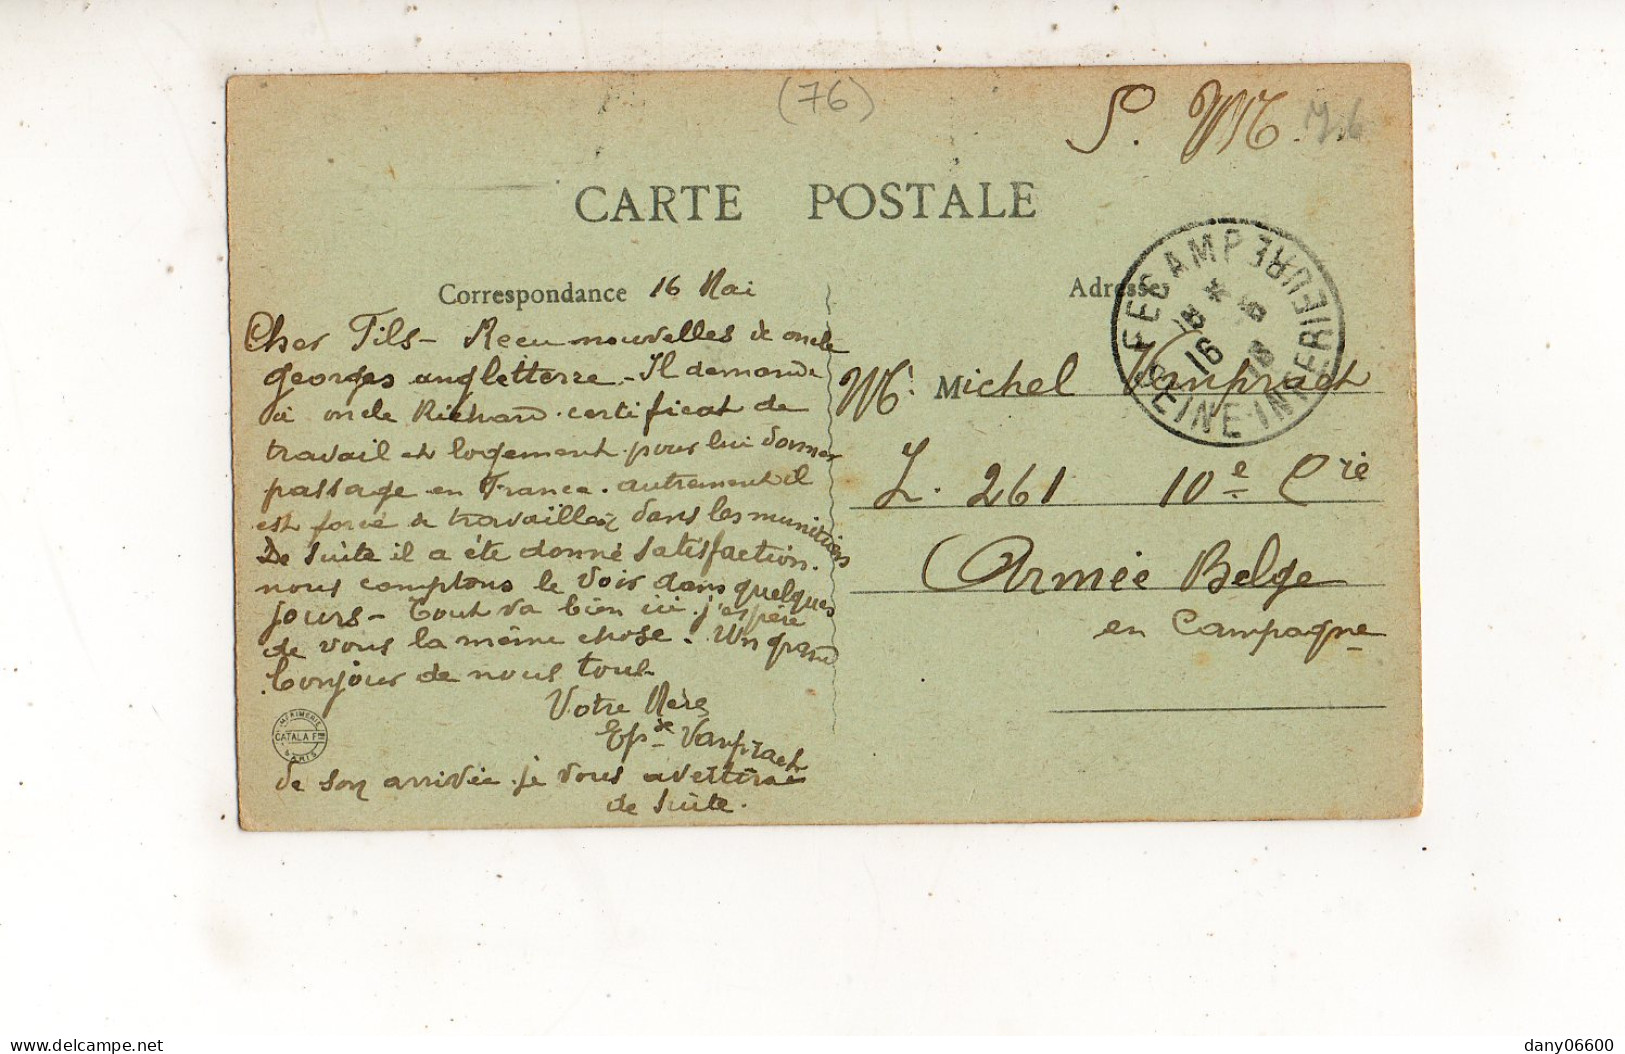 (76)
S. M.
CARTE POSTALE
Correspondance 16 Mai
Cher Fils - Recu nouvelles de oncle
georges angleterre - Il demande
a oncle Richard certificat de
travail et logement pour lui donner
passage en France. autrement il
est forcé de travailler dans les munitions
De suite il a été donné satisfaction.
nous comptons le voir dans quelques
jours - Tout va bien ici. j'espère
de vous la même chose. Un grand
bonjour de nous tous
Votre Mère
Vanpraet
de son arrivée je vous avertirai
de suite.
IMPRIMERIE
CATALA Fres
PARIS
Adresse
FECAMP
SEINE-INFERIEURE
16
Mr. Michel Vanpraet
Z. 261 10e Cie
Armée Belge
en Campagne
www.delcampe.net
dany06600